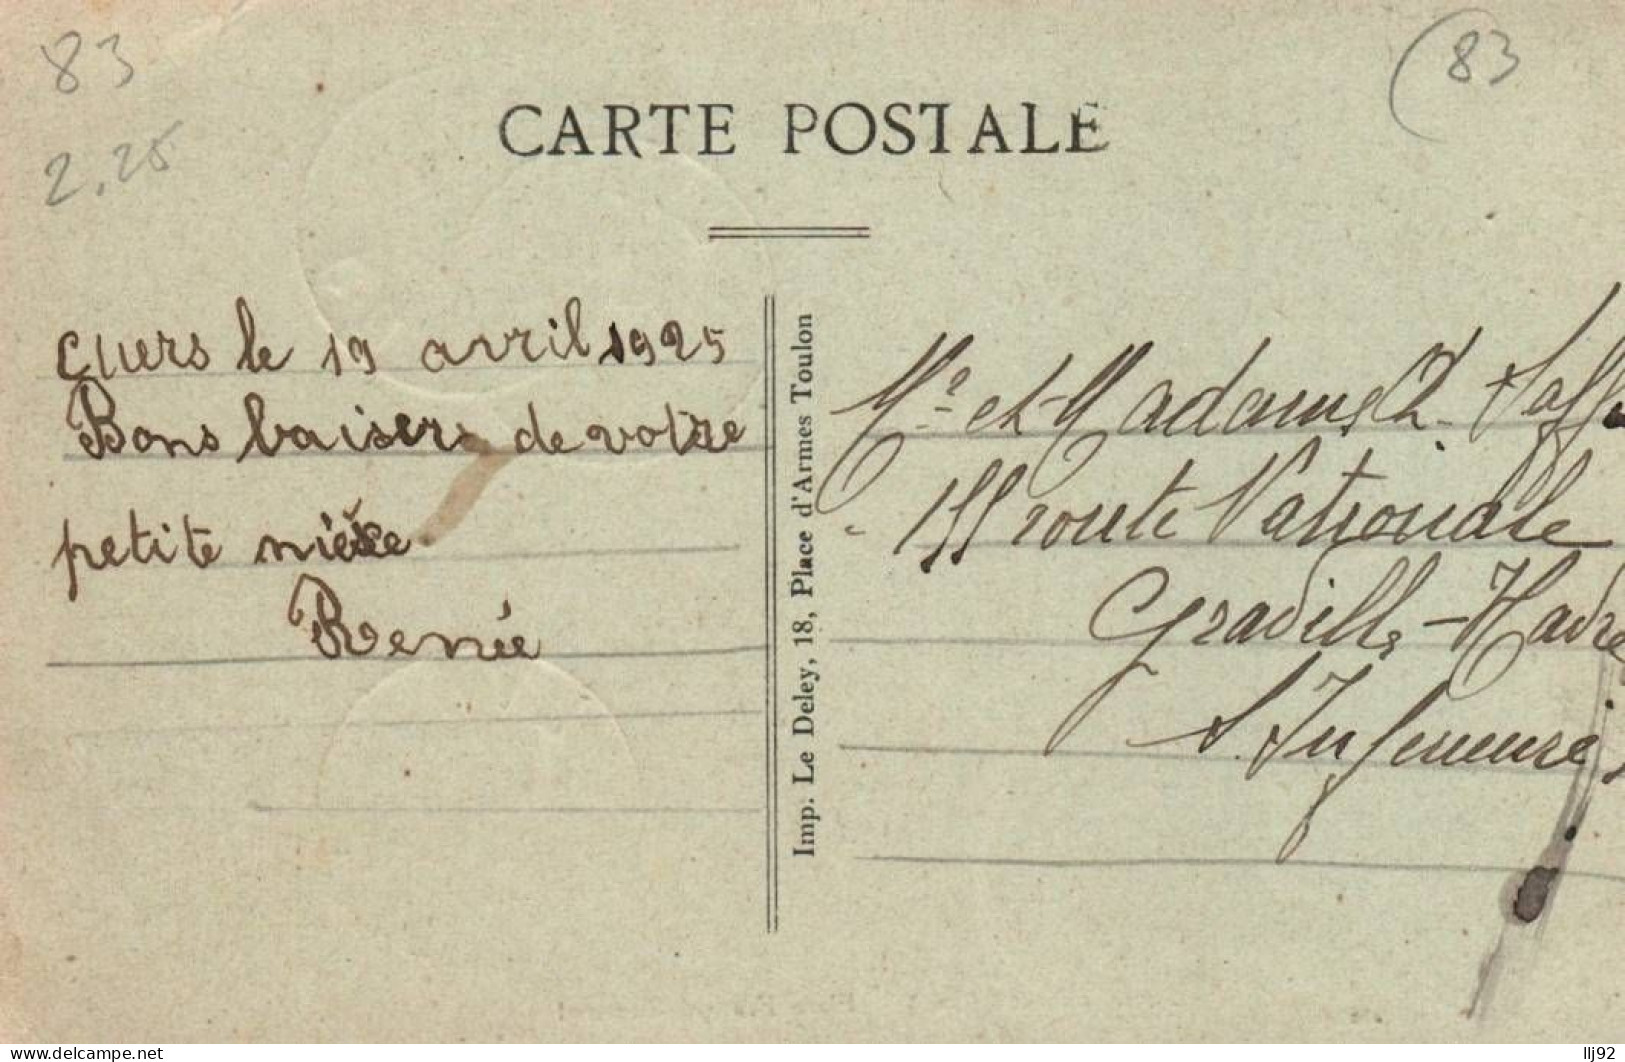 83
(83
2.25
CARTE POSTALE
Cuers le 19 avril 1925
Bons baisers de votre
petite nièce
Renée
Imp. Le Deley, 18, Place d'Armes Toulon
Mr et Madame
155 route Nationale
Graville-Havre
S. Inferieure
Delcampe.net
llj92